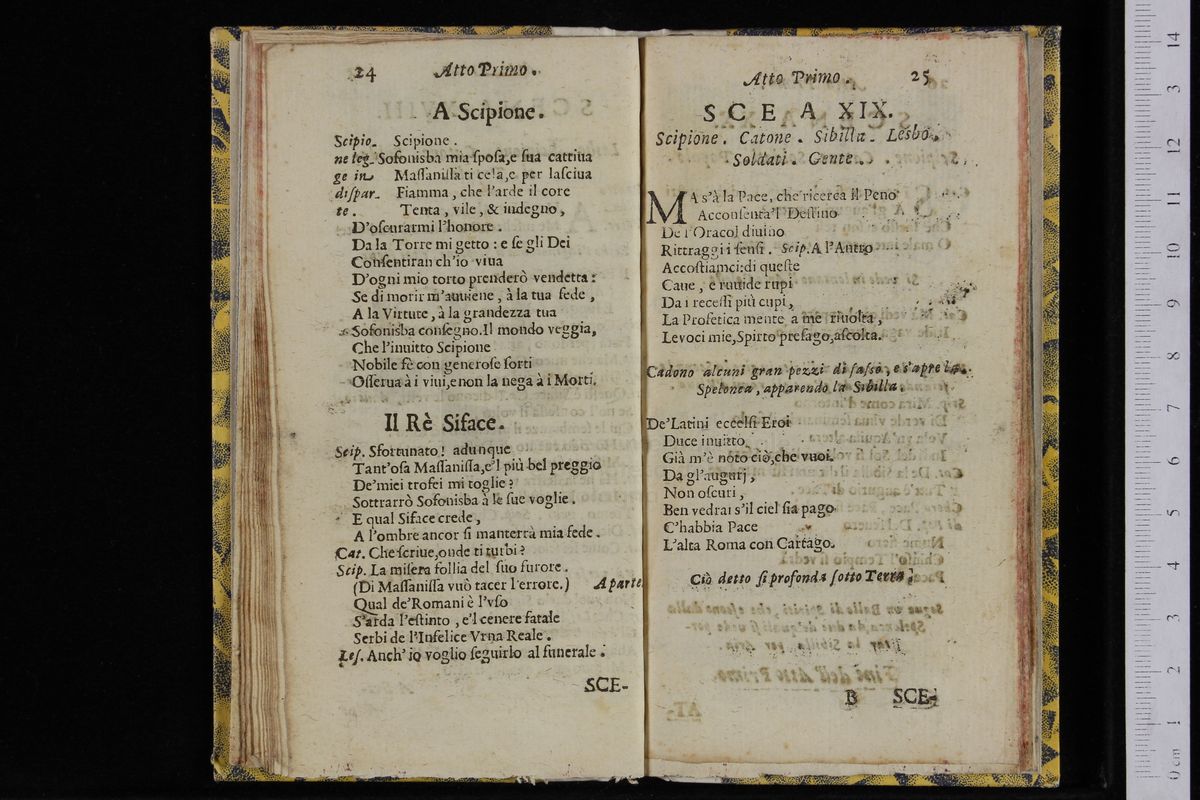 24 Atto Primo.
A Scipione.
Scipio- Scipione.
ne leg- Sofonisba mia sposa,e sua cattiua
ge in Massanissa ti cela,e per lasciua
dispar- Fiamma, che l'arde il core
te. Tenta, vile, & indegno,
D'oscurarmi l'honore.
Da la Torre mi getto: e se gli Dei
Consentiran ch'io viua
D'ogni mio torto prenderò vendetta:
Se di morir m'auuiene, à la tua fede,
A la Virtute, à la grandezza tua
Sofonisba consegno.Il mondo veggia,
Che l'inuitto Scipione
Nobile fè con generose sorti
Osserua à i viui,e non la nega à i Morti.
Il Rè Siface.
Scip. Sfortunato! adunque
Tant'osa Massanissa,e'l più bel preggio
De'miei trofei mi toglie?
Sottrarrò Sofonisba à le sue voglie.
E qual Siface crede,
A l'ombre ancor si manterrà mia fede.
Cat. Che scriue,onde ti turbi?
Scip. La misera follia del suo furore.
(Di Massanissa vuò tacer l'errore.) A parte
Qual de'Romani è l'vso
S'arda l'estinto, e'l cenere fatale
Serbi de l'Infelice Vrna Reale.
Les. Anch' io voglio seguirlo al funerale.
SCE-
Atto Primo. 25
SCEA XIX.
Scipione. Catone. Sibilla. Lesbo.
Soldati. Gente.
MA s'à la Pace, che ricerca il Peno
Acconsenta'l Destino
De l'Oracol diuino
Rittraggi i sensi. Scip.A l'Antro
Accostiamci:di queste
Caue, e ruuide rupi
Da i recessi più cupi,
La Profetica mente a me riuolta,
Le voci mie,Spirto presago,ascolta.
Cadono alcuni gran pezzi di sasso, e s'apre la
Spelonca, apparendo la Sibilla.
De'Latini eccelsi Eroi
Duce inuitto
Già m'è noto ciò,che vuoi.
Da gl'augurj,
Non oscuri,
Ben vedrai s'il ciel sia pago
C'habbia Pace
L'alta Roma con Cartago.
Ciò detto si profonda sotto Terra.
B SCE-